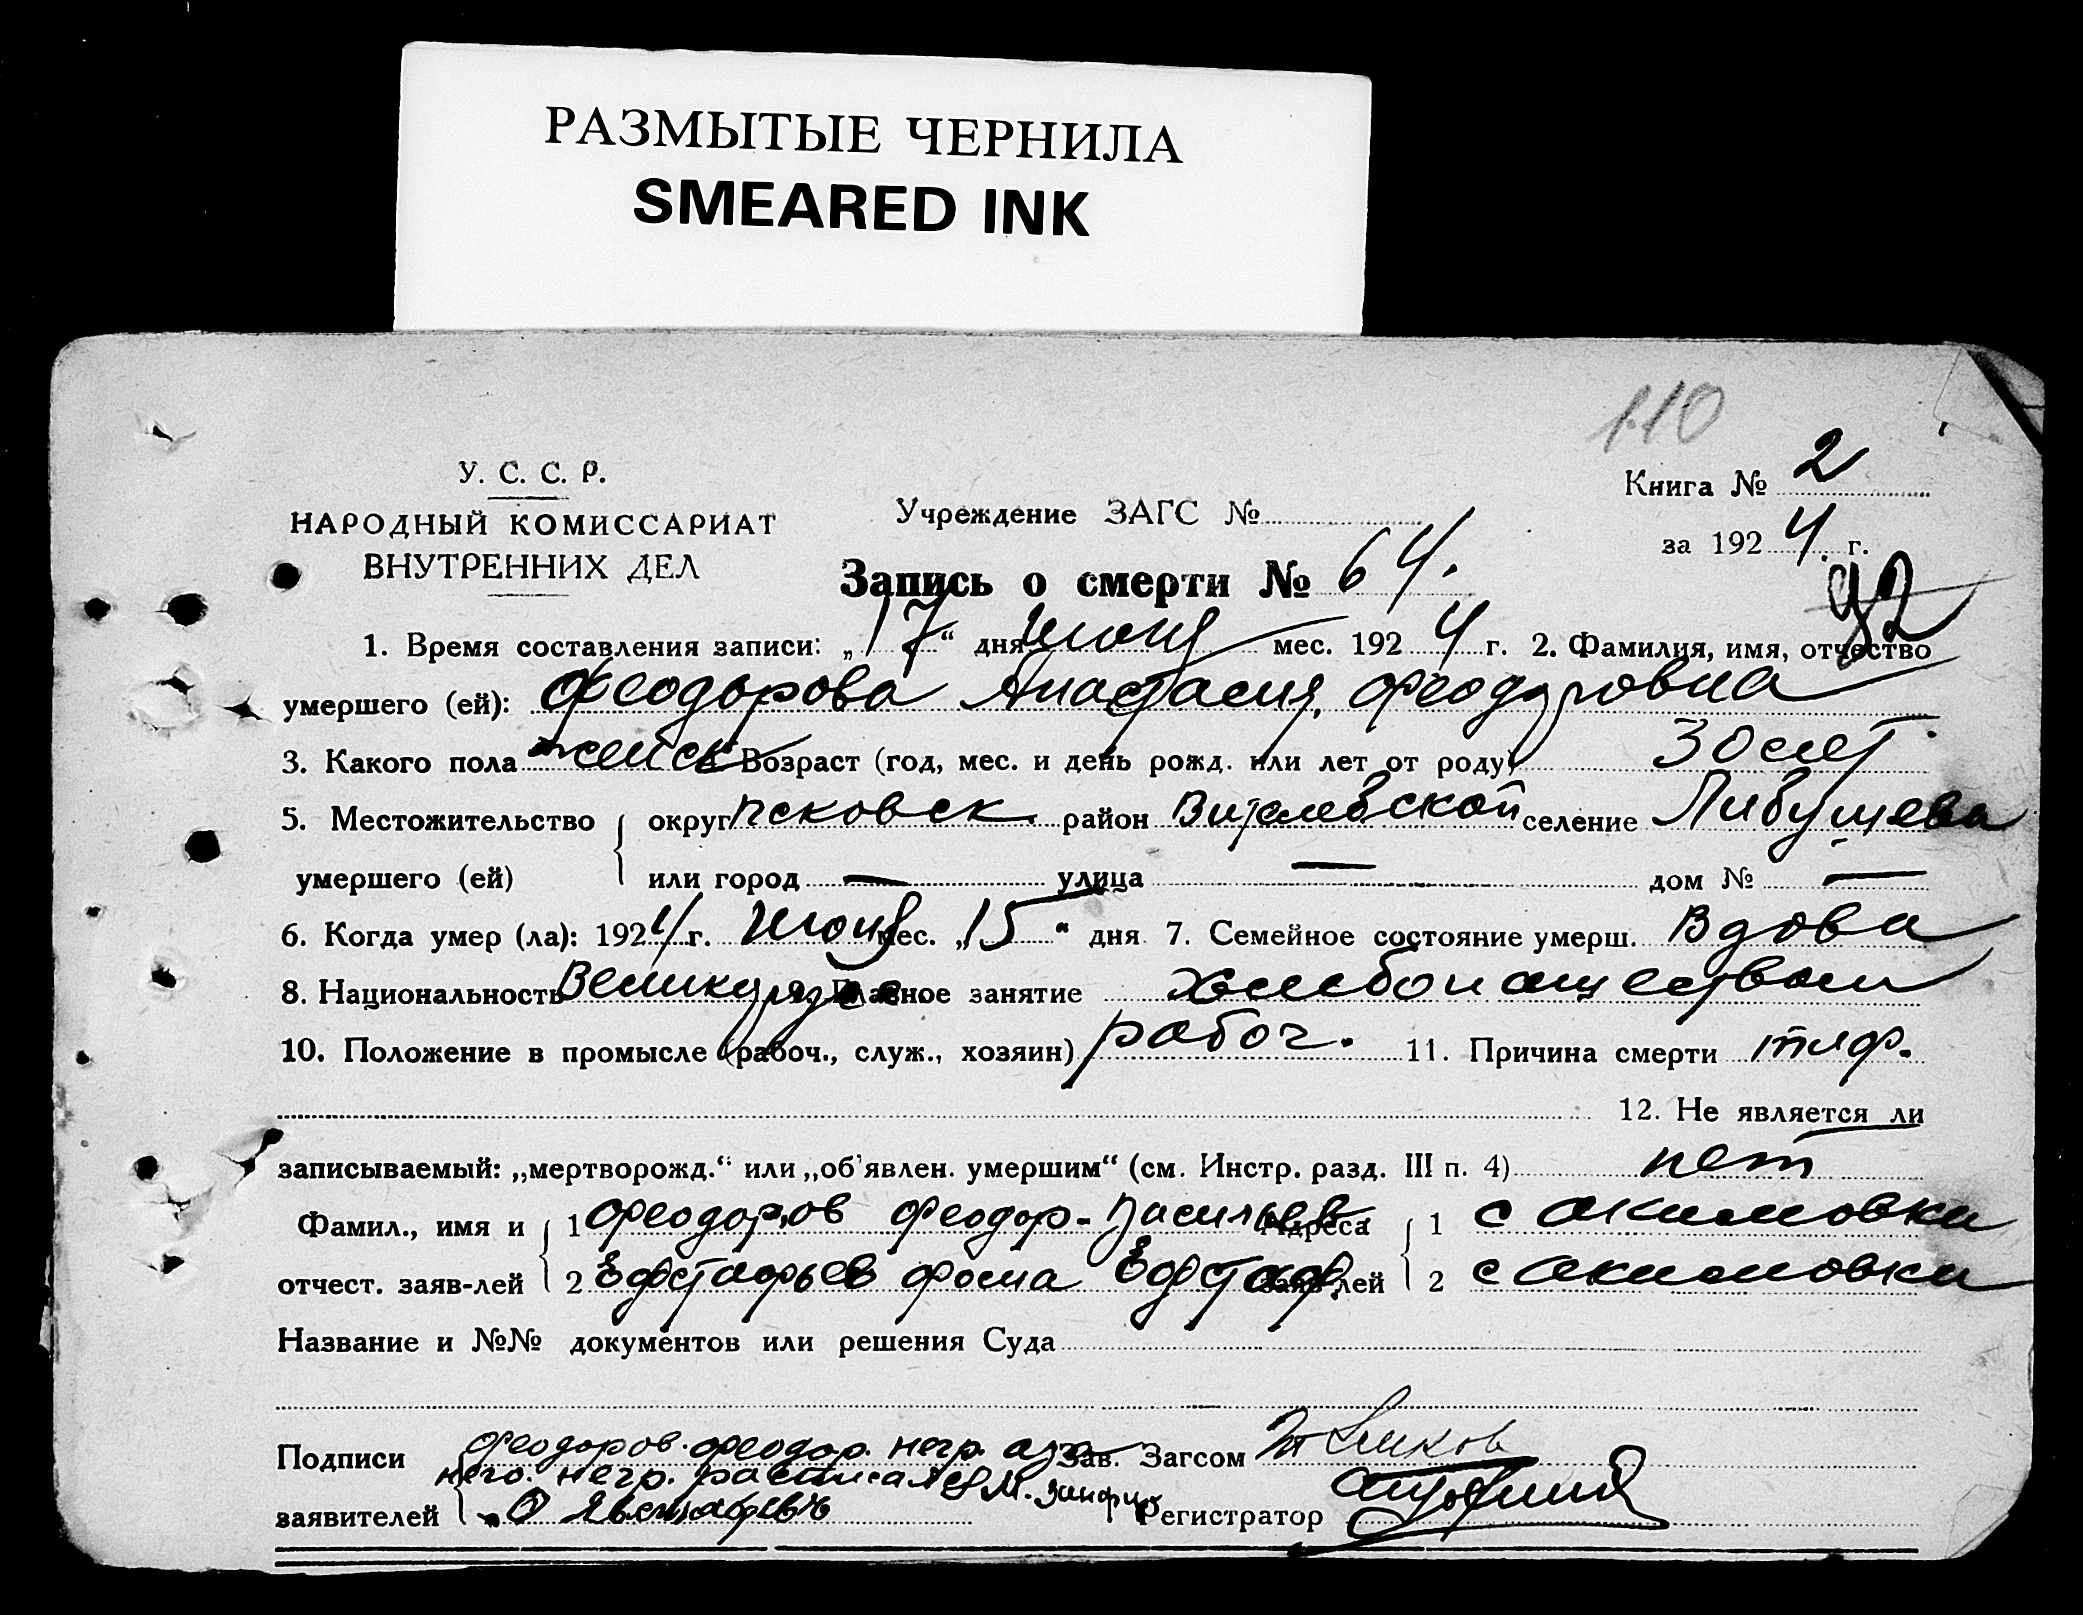 РАЗМЫТЫЕ ЧЕРНИЛА
SMEARED INK
110
У. С. С. Р.
НАРОДНЫЙ КОМИССАРИАТ
ВНУТРЕННИХ ДЕЛ
Учреждение ЗАГС №
Книга № 2
за 1924 г.
Запись о смерти № 64.
92
1. Время составления записи: „17“ дня июня мес. 1924 г. 2. Фамилия, имя, отчество
умершего (ей): Феодорова Анастасия Феодоровна
3. Какого пола женск Возраст (год, мес. и день рожд. или лет от роду) 30 лет
5. Местожительство умершего (ей) округ Псковск. район селение
или город — улица — дом № —
6. Когда умер (ла): 1924 г. июня мес. „15“ дня 7. Семейное состояние умерш. Вдова
8. Национальность Великорус Главное занятие хлебопашеством
10. Положение в промысле (рабоч., служ., хозяин) рабоч. 11. Причина смерти тиф.
12. Не является ли
записываемый: „мертворожд.“ или „об'явлен. умершим“ (см. Инстр. разд. III п. 4) нет
Фамил., имя и 1 Феодоров Феодор Васильев Адреса 1 с Акимовки
отчест. заяв-лей 2 Ефстафьев Фома Ефстаф. заяв-лей 2 с Акимовки
Название и №№ документов или решения Суда
Подписи Феодоров Феодор негр. а за Зав. Загсом
него негр. расписался
заявителей Регистратор